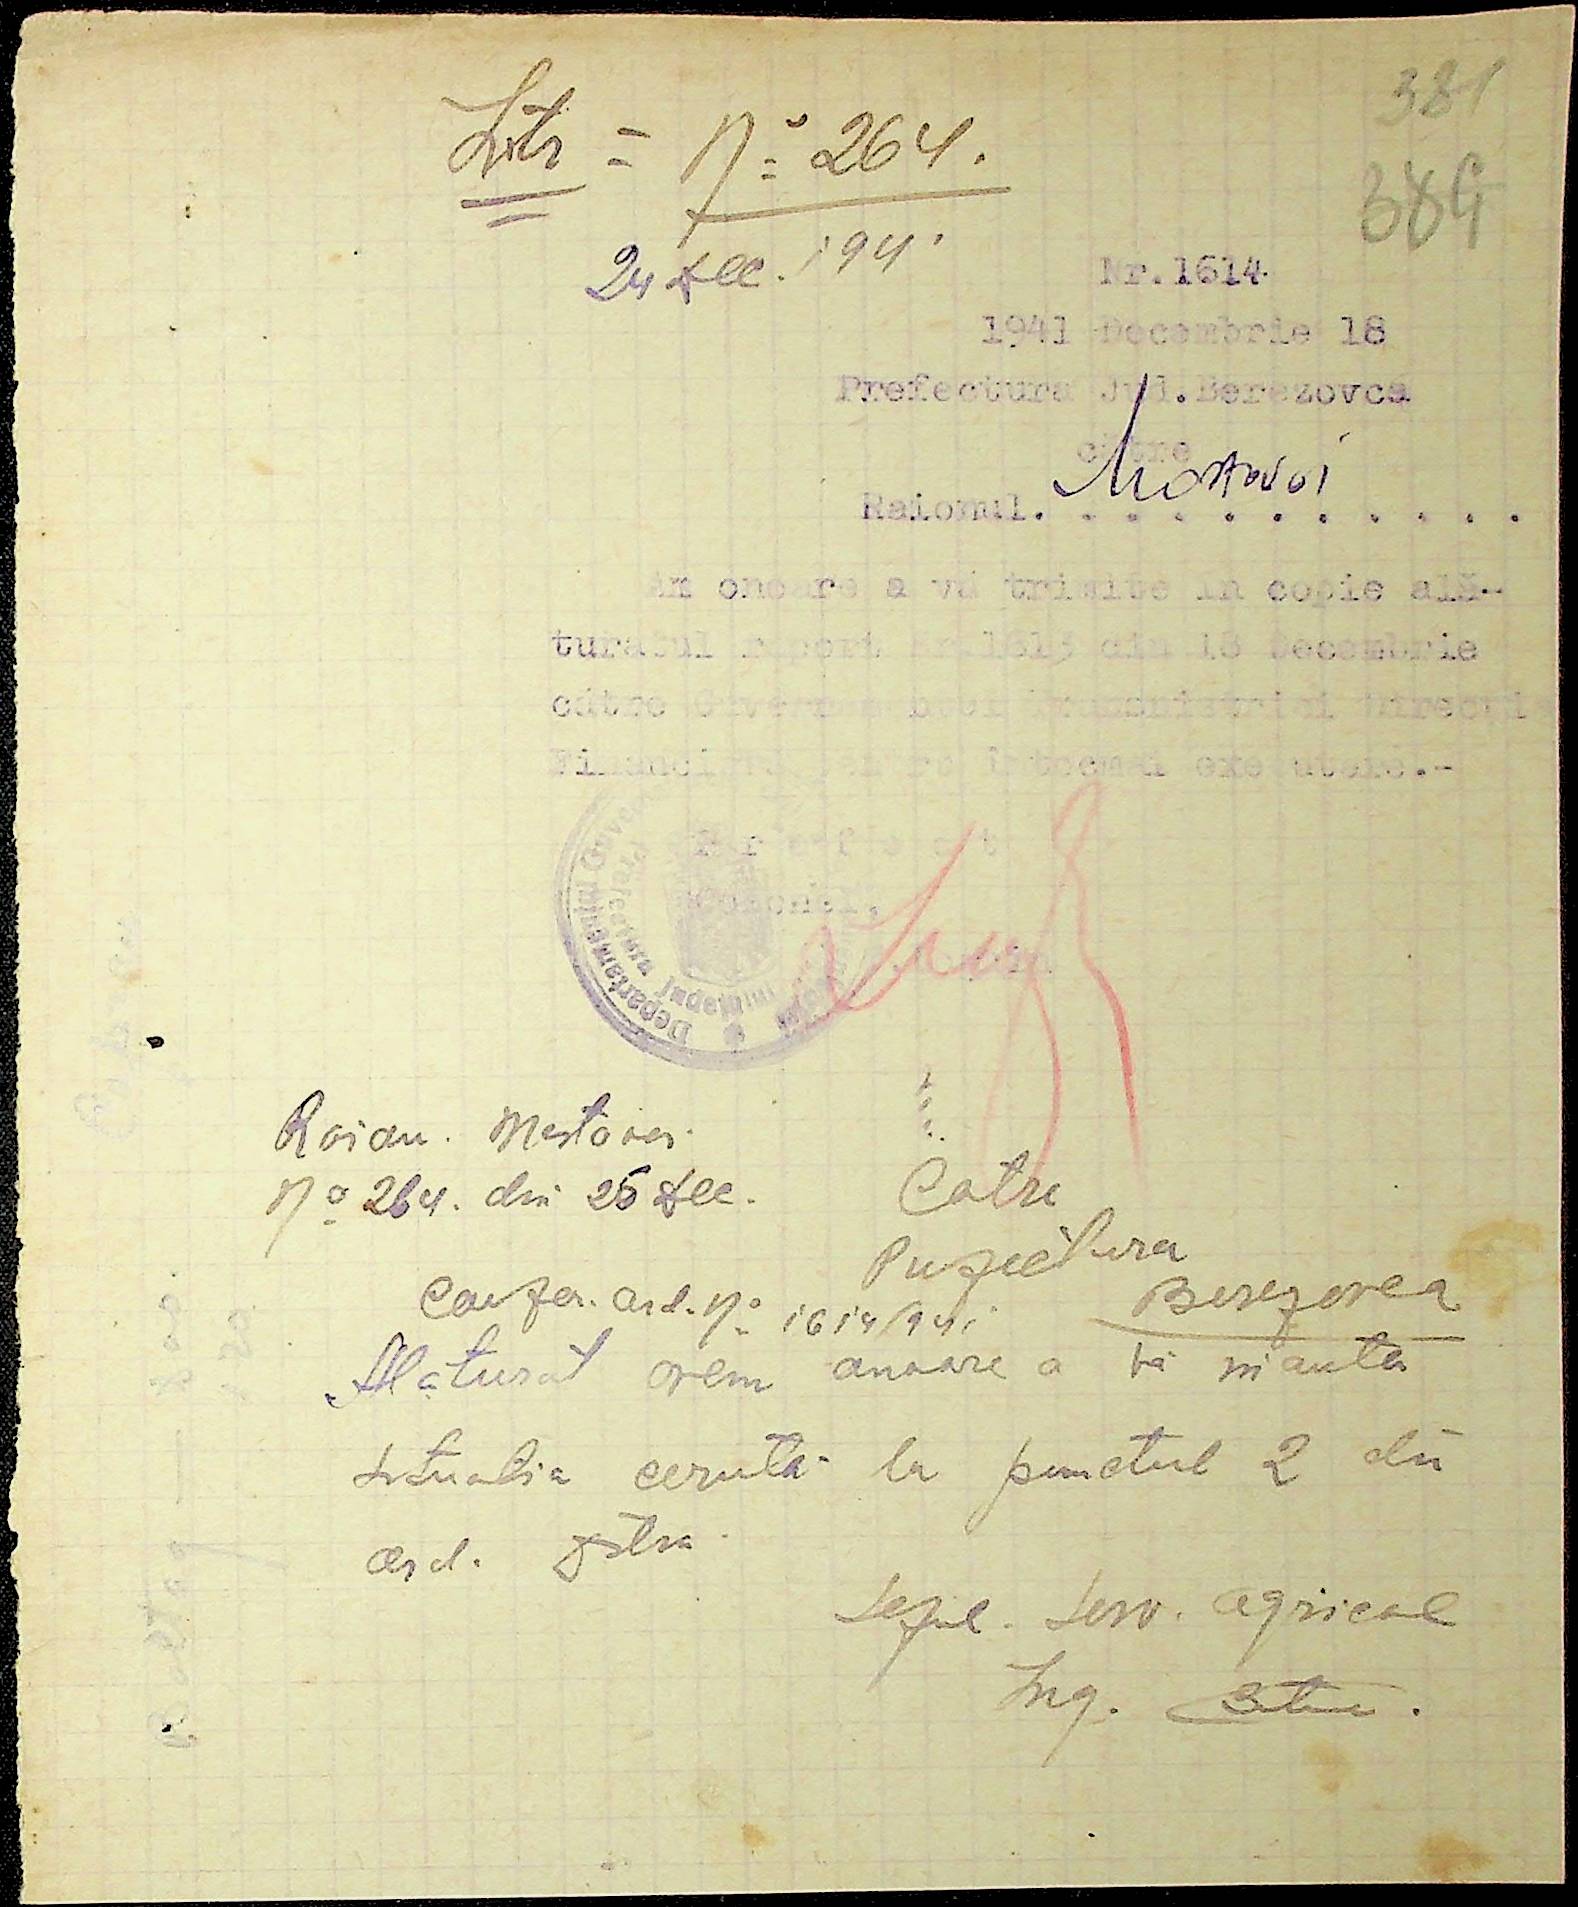 381
384
Intr = Nº 264.
24 Dec. 1941
Nr.1614
1941 Decembrie 18
Prefectura Jud.Berezovca
către
Raionul. Mostovoi
Am onoare a vă trimite in copie ală-
turatul raport Nr.1613 din 18 Decembrie
către Guvernământul Direcţi
Financi intocmai executare.-
Departamentul Guver
Prefectura Judeţului
Raion. Mostovoi.
Nº 264. din 25 Dec.
Catre
Prefectura
Berezovca
Confor. ord. Nº 1614/941
Alaturat avem onoare a vă inainta
situatia ceruta la punctul 2 din
ord. Dstra
Seful. Serv. agricol
Ing.